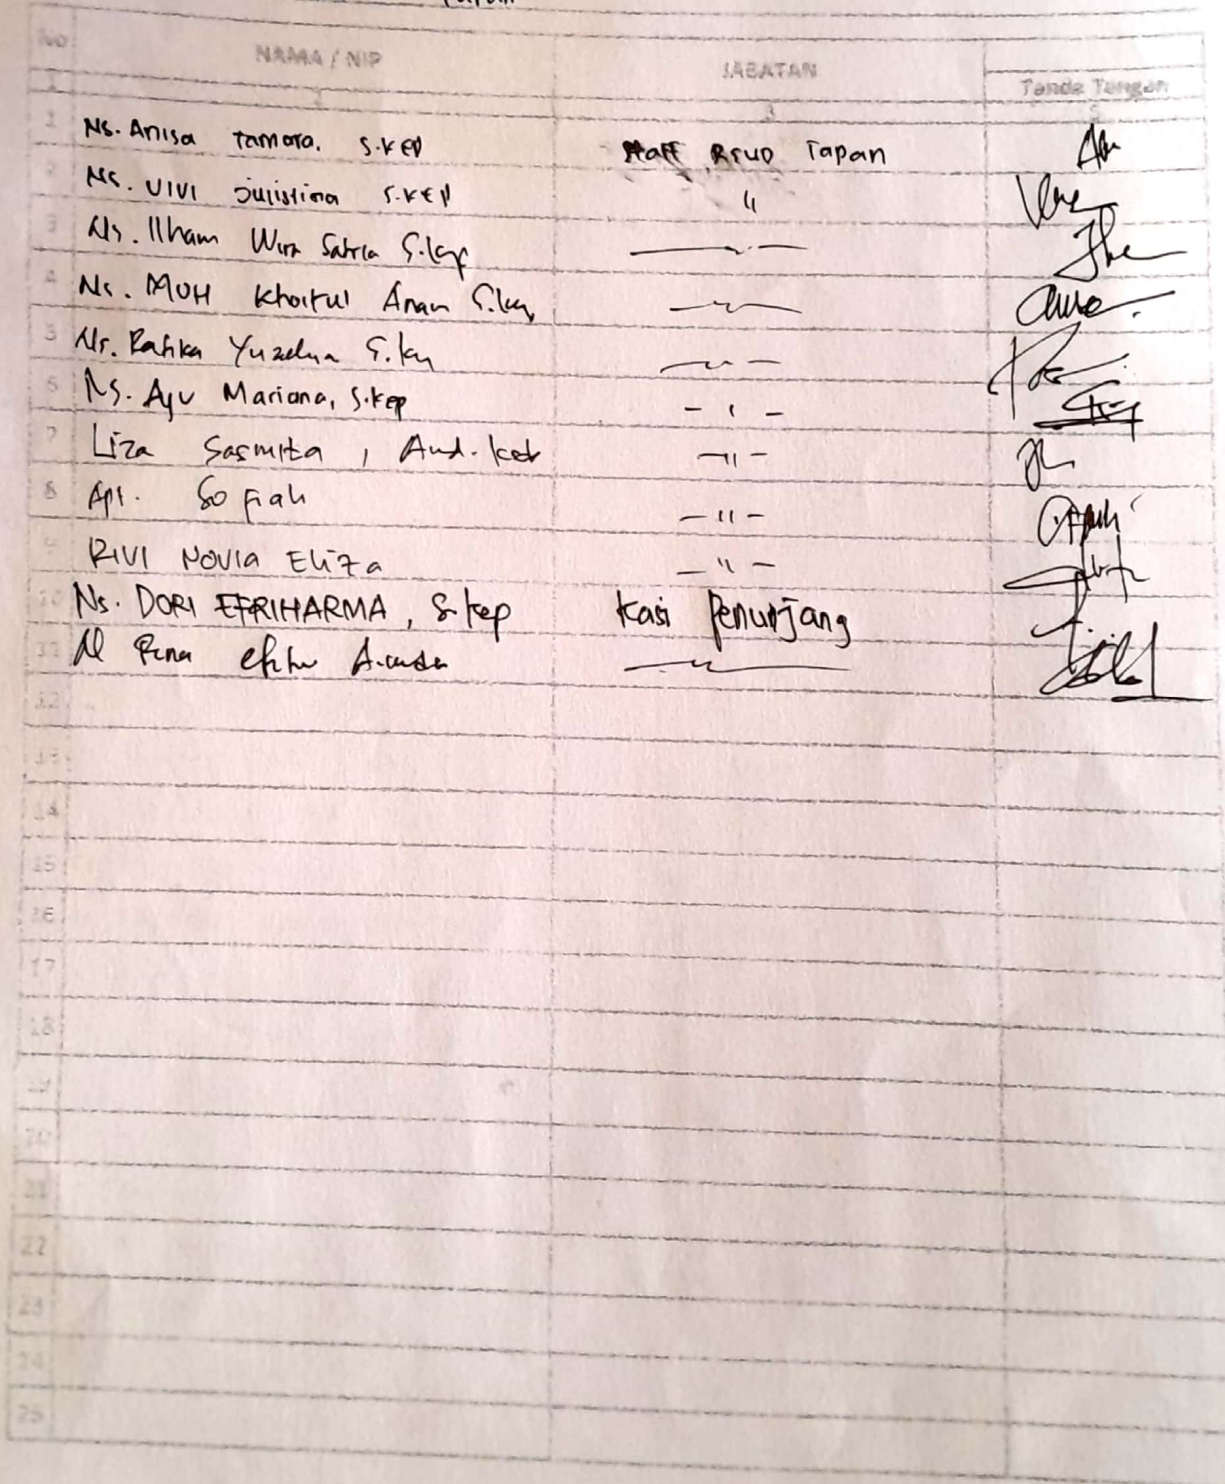 No NAMA / NIP JABATAN Tanda Tangan
1 Ns. Anisa Tamara. S.KEP Staff RSUD Tapan
2 Ns. VIVI Julistina S.KEP "
3 Ns. Ilham Wira Satria S.kep
4 Ns. MUH Khoirul Anam S.kep
5 Ns. Rafika S.kep
6 Ns. Ayu Mariana, S.kep - " -
7 Liza Sasmita, Amd. keb - " -
8 Apt. Sofiah - " -
9 RIVI NOVIA ELIZA - " -
10 Ns. DORI EFRIHARMA, S.kep Kasi Penunjang
11 Rina
12
13
14
15
16
17
18
19
20
21
22
23
24
25